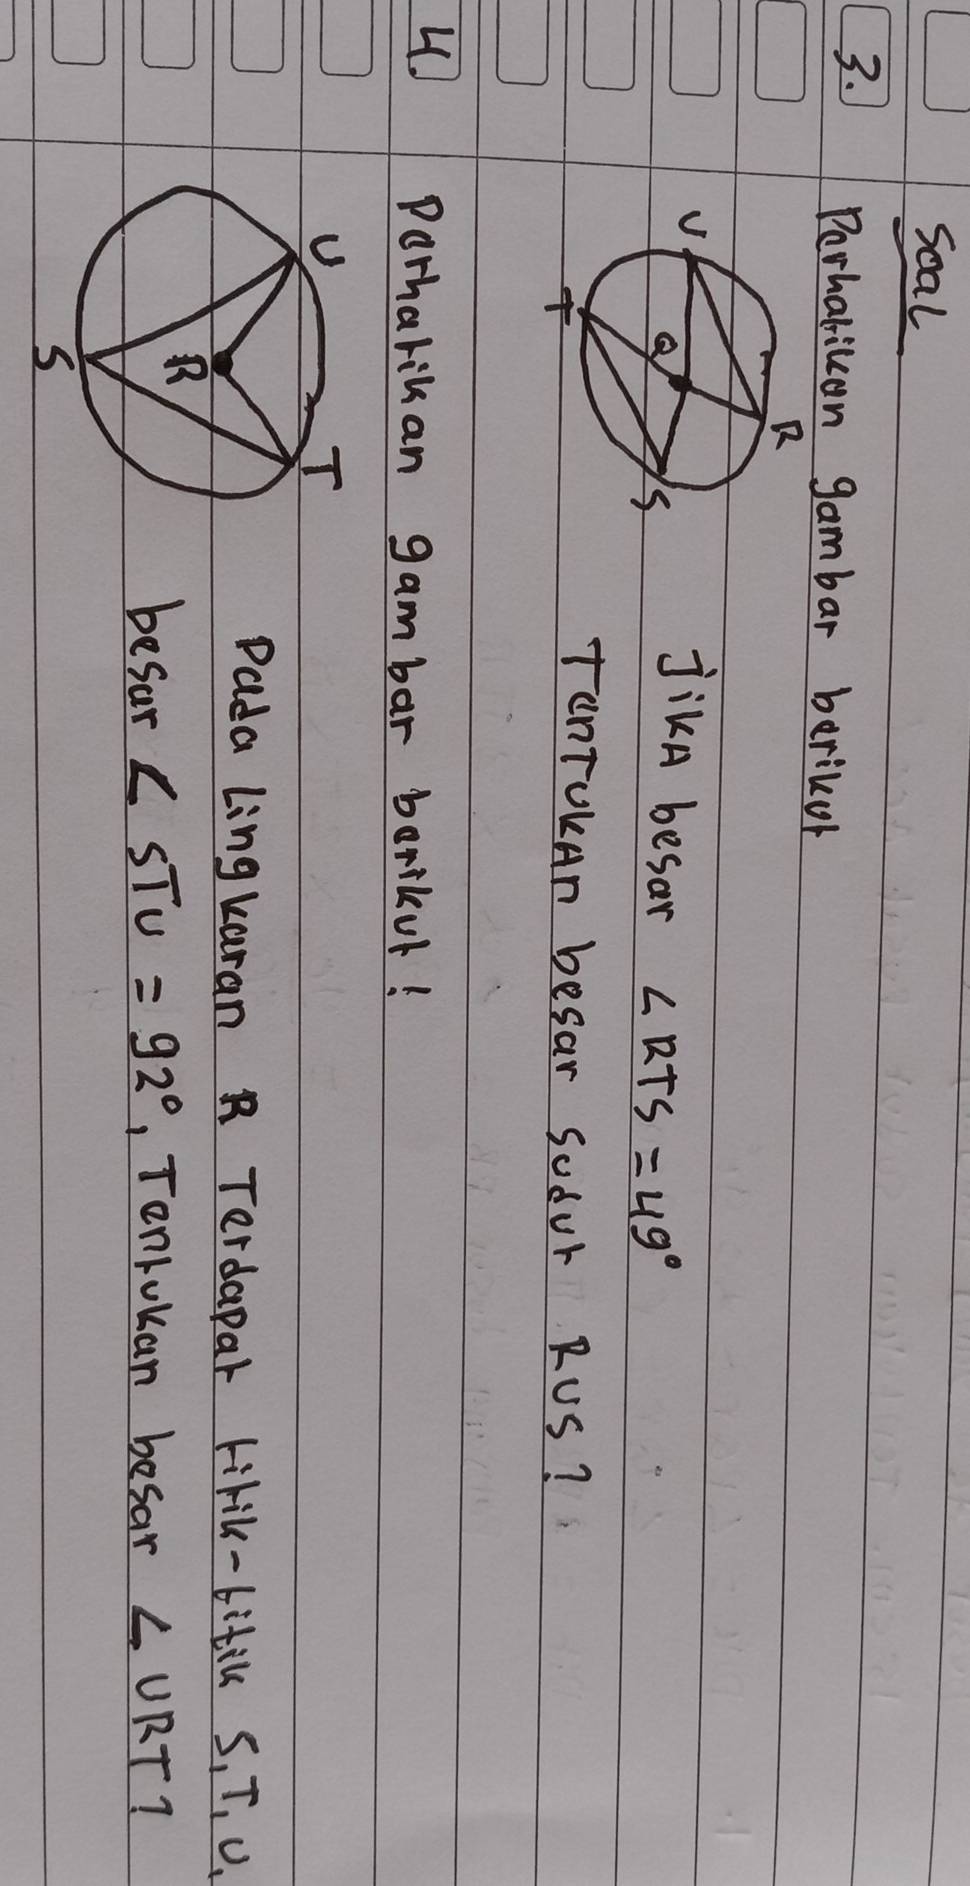 Soal
3. Perhatikan gambar berikut
R
U
Q
T
S
Jika besar ∠RTS = 49°
Tentukan besar sudut RUS?
4. Perhatikan gambar berikut!
U
T
R
S
Pada Lingkaran R Terdapat titik-titik S, T, U,
besar ∠ STU = 92°, Tentukan besar ∠ URT?